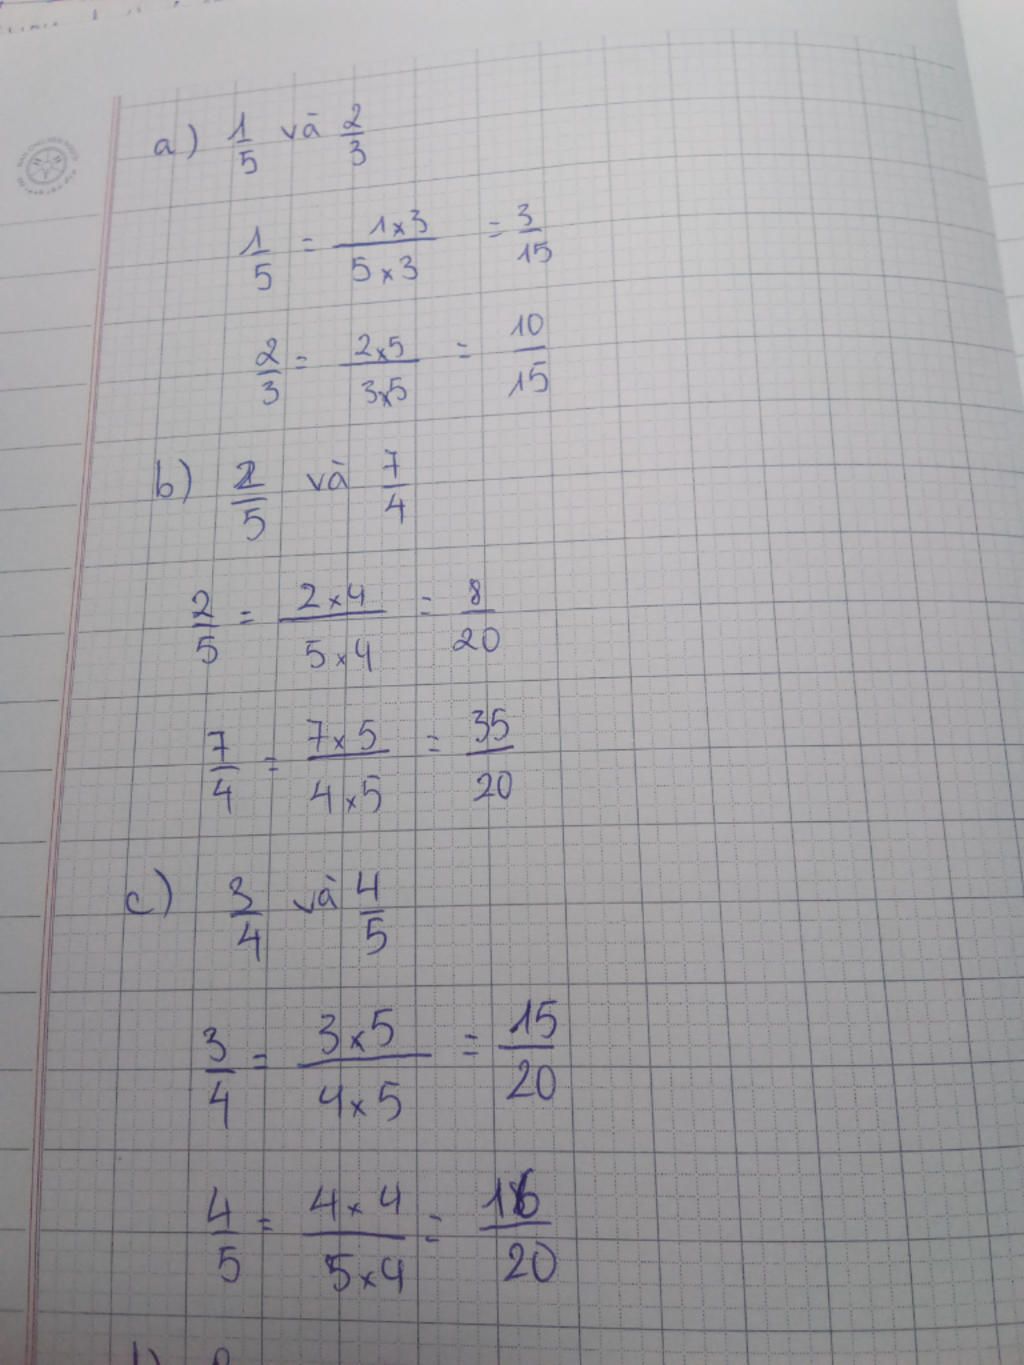 a) 1/5 và 2/3
1/5 = 1×3/5×3 = 3/15
2/3 = 2×5/3×5 = 10/15
b) 2/5 và 7/4
2/5 = 2×4/5×4 = 8/20
7/4 = 7×5/4×5 = 35/20
c) 3/4 và 4/5
3/4 = 3×5/4×5 = 15/20
4/5 = 4×4/5×4 = 16/20